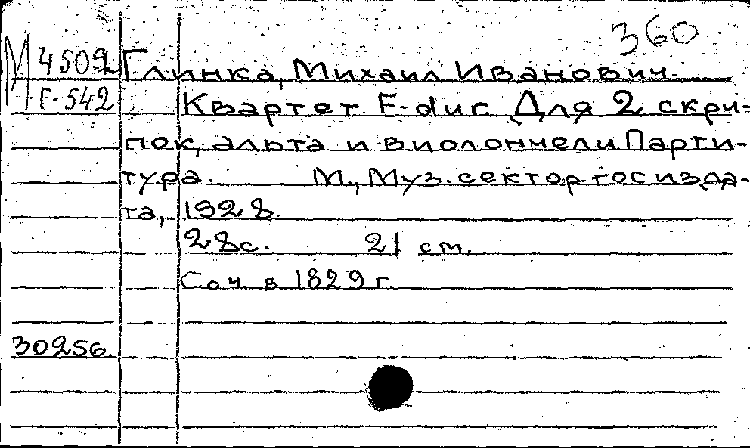 360
М 4509 Глинка, Михаил Иванович.
Г-542 Квартет F-dur. Для 2 скри-
пок, альта и виолончели. Парти-
тура. М., Муз. сектор госизда-
та, 1928.
28с. 21 см.
Соч. в 1829 г.
30256.